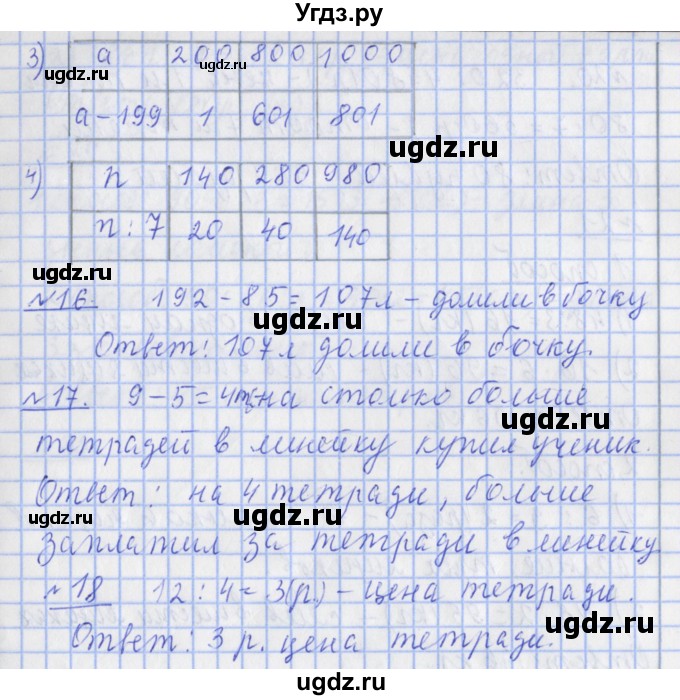 Угдз.ру
3) a 200 800 1000
a-199 1 601 801
4) n 140 280 980
n:7 20 40 140
№16. 192-85=107л - долили в бочку
Ответ: 107л долили в бочку.
№17. 9-5=4 на столько больше
тетрадей в линейку купил ученик.
Ответ: на 4 тетради, больше
заплатил за тетради в линейку
№18 12:4=3(р.) - цена тетради.
Ответ: 3 р. цена тетради.
ugdz.ru
ugdz.ru
ugdz.ru
ugdz.ru
ugdz.ru
ugdz.ru
ugdz.ru
ugdz.ru
ugdz.ru
ugdz.ru
ugdz.ru
ugdz.ru
ugdz.ru